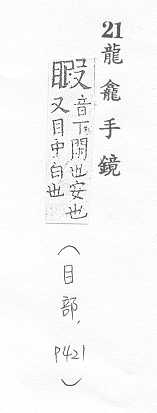 21 龍龕手鏡
睱 音下閑也安也
又目中白也
(目部, P421)